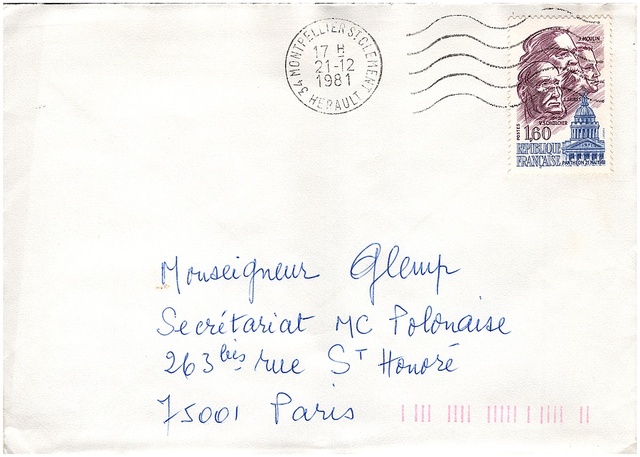 34 MONTPELLIER ST CLEMENT
17 H
21-12
1981
HERAULT
J. MOULIN
V. SCHOELCHER
POSTES 1,60
RÉPUBLIQUE
FRANÇAISE
PANTHEON 21 MAI 1981
Monseigneur Glemp
Secrétariat MC Polonaise
263 bis rue St Honoré
75001 Paris